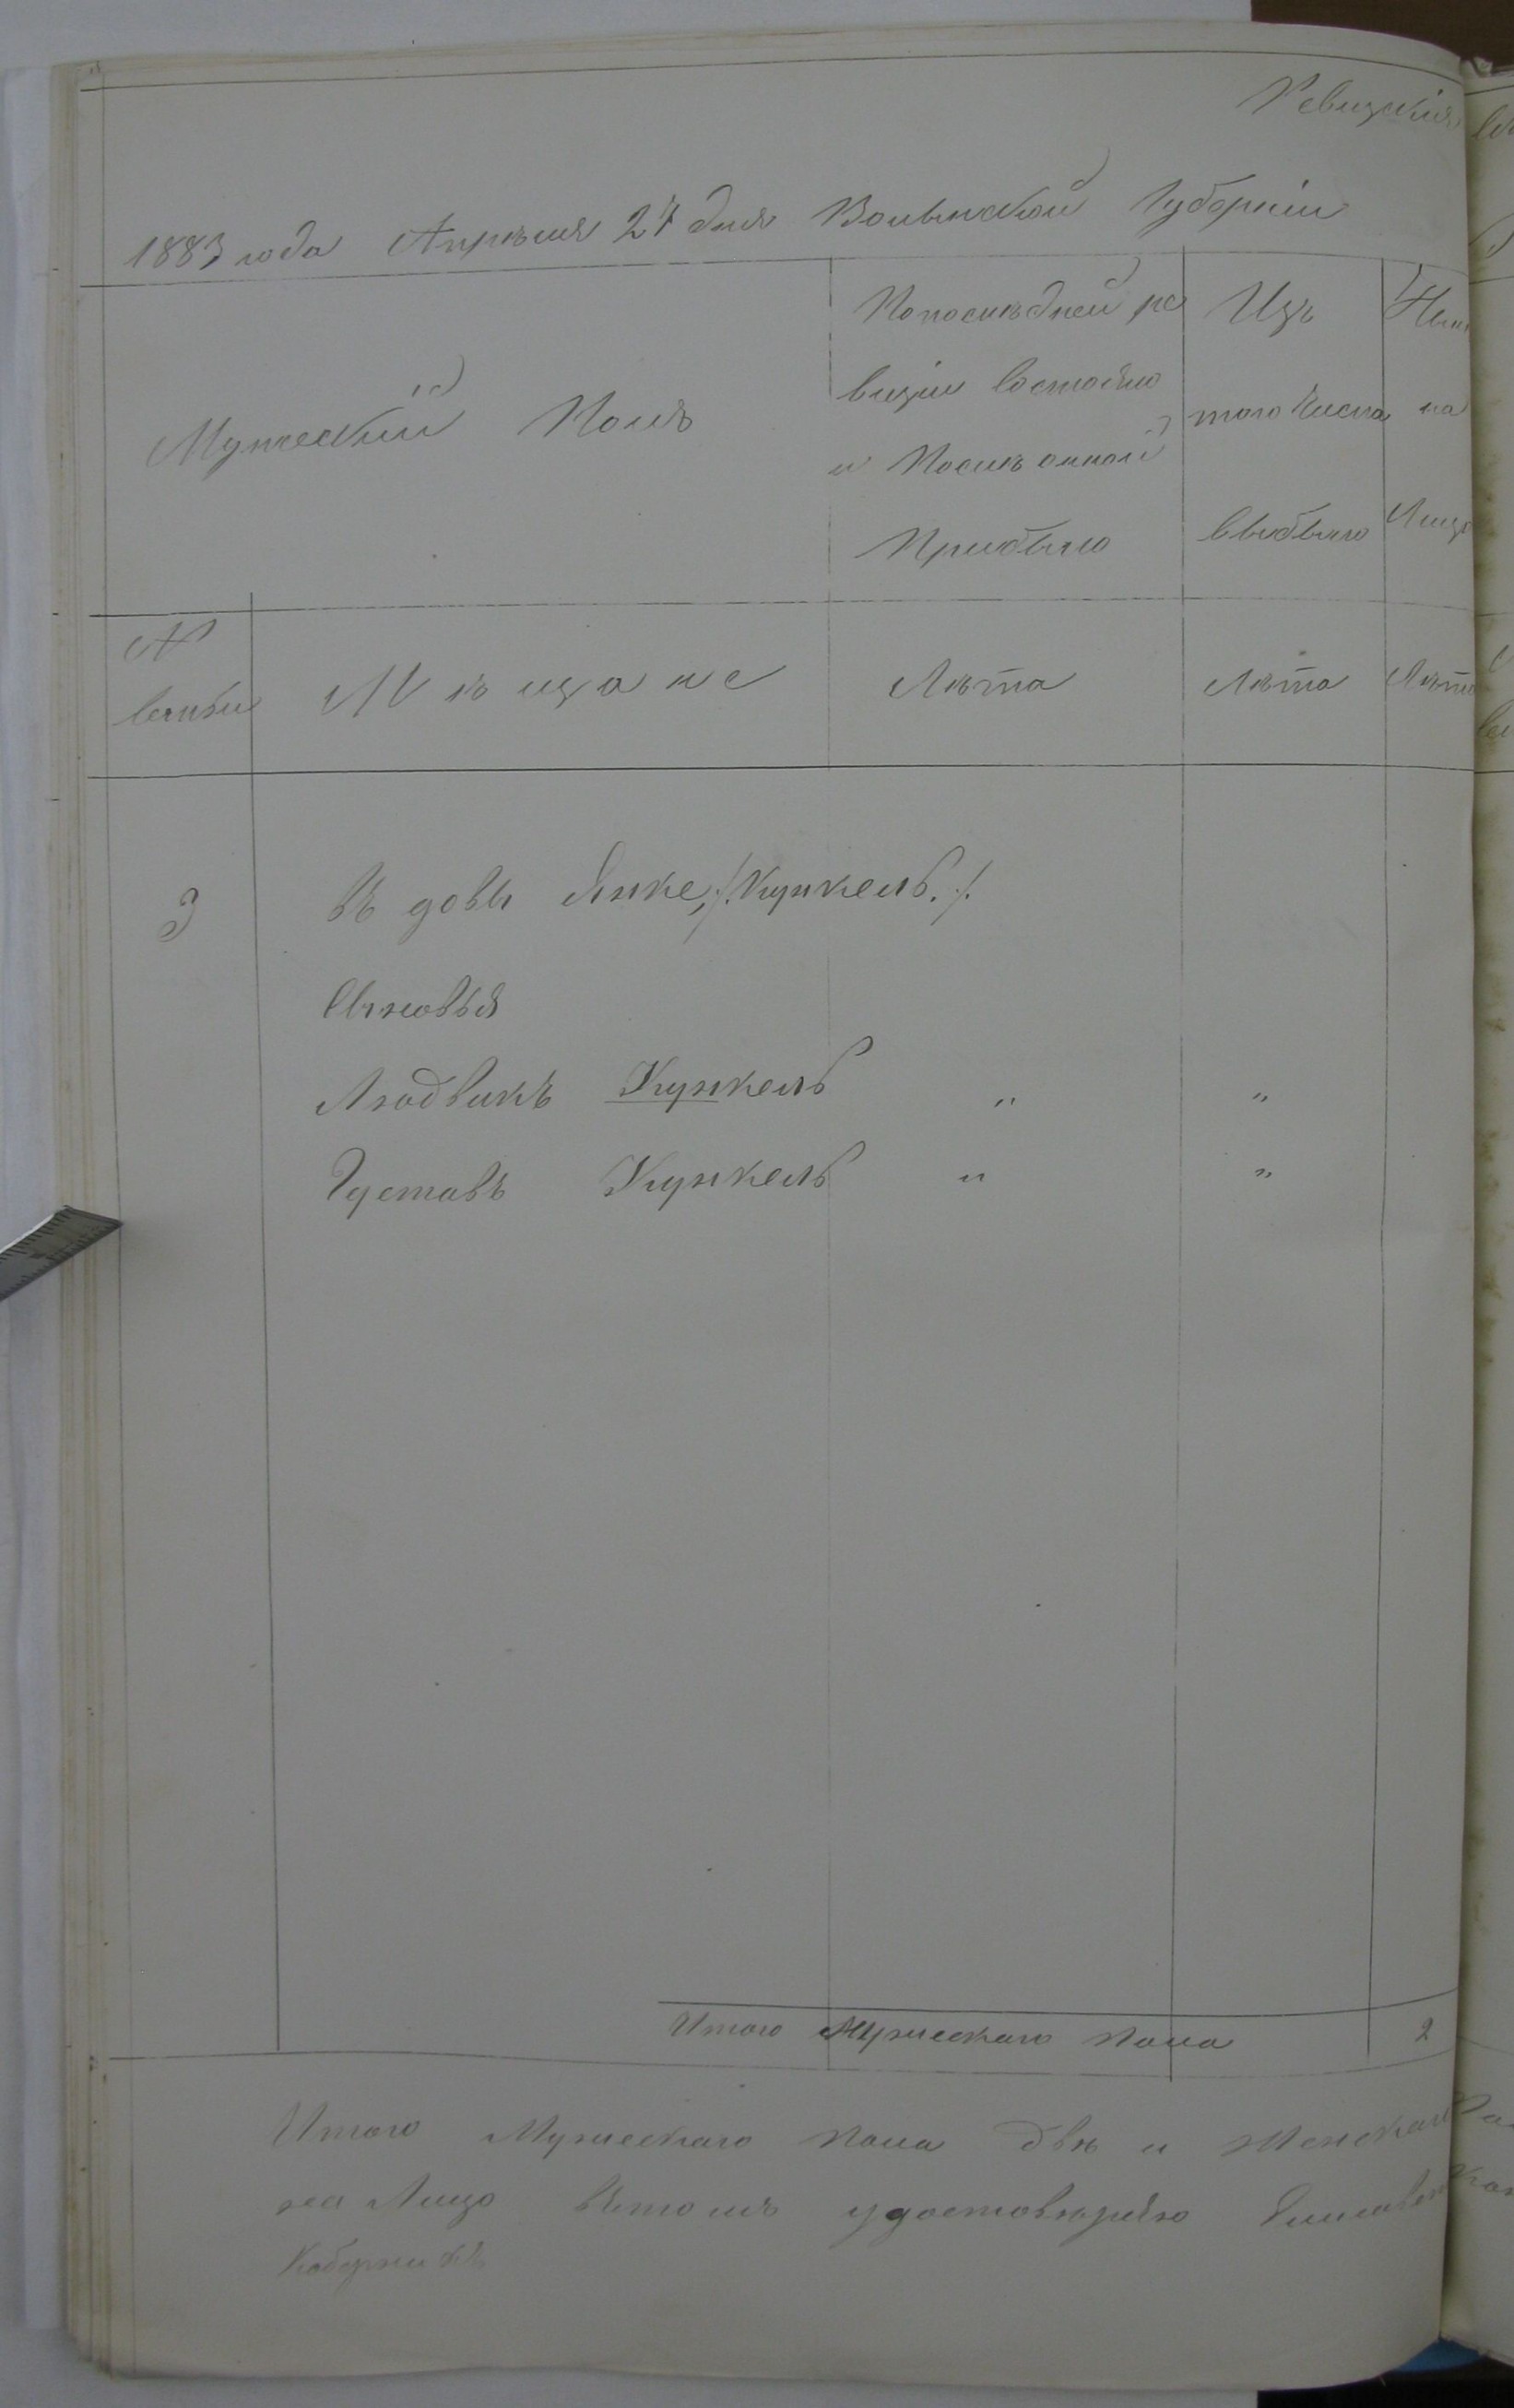 Ревизкия
1883 года Апрѣля 27 дня Волынской Губерніи
Мужеский Полъ
Попослѣдней ре
визіи состояло
и Послѣ онной
Прибыло
Изъ
того Числа
выбыло
Нын
на
Лицо
№
семьи
Мѣщане
Лѣта
Лѣта
Лѣта
3
Въ довы Янке, /:Кункель:/
Сыновья
Людвикъ Кункель " "
Густавъ Кункель " "
Итого Мужескаго пола 2
Итого Мужескаго пола двѣ и Женскаго
на Лицо вътомъ удостовѣряю